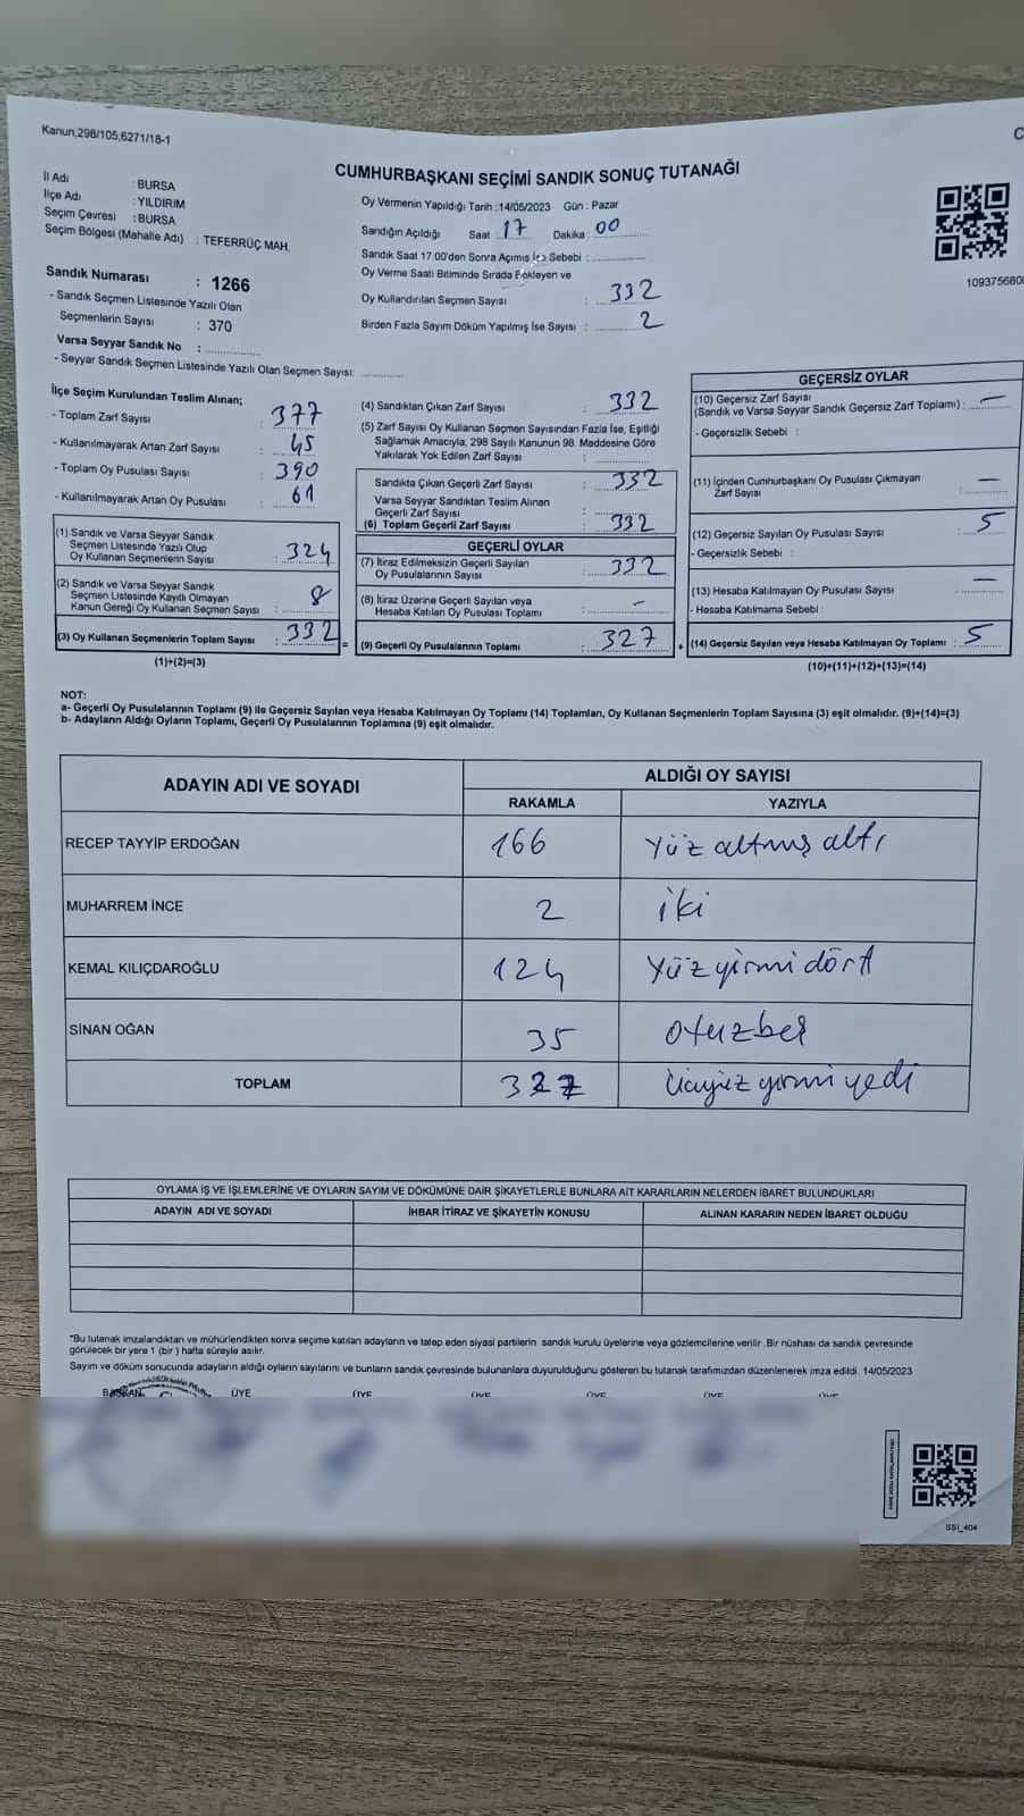 Kanun,298/105,6271/18-1
C
CUMHURBAŞKANI SEÇİMİ SANDIK SONUÇ TUTANAĞI
İl Adı : BURSA
İlçe Adı : YILDIRIM
Seçim Çevresi : BURSA
Seçim Bölgesi (Mahalle Adı) : TEFERRÜÇ MAH.
Oy Vermenin Yapıldığı Tarih :14/05/2023 Gün : Pazar
Sandığın Açıldığı Saat : 17 Dakika : 00
Sandık Saat 17.00'den Sonra Açımış İse Sebebi :
Oy Verme Saati Bitiminde Sırada Bekleyen ve
Oy Kullandırılan Seçmen Sayısı : 332
Birden Fazla Sayım Döküm Yapılmış İse Sayısı : 2
109375680
Sandık Numarası : 1266
- Sandık Seçmen Listesinde Yazılı Olan
Seçmenlerin Sayısı : 370
Varsa Seyyar Sandık No :
- Seyyar Sandık Seçmen Listesinde Yazılı Olan Seçmen Sayısı:
İlçe Seçim Kurulundan Teslim Alınan;
- Toplam Zarf Sayısı : 377
- Kullanılmayarak Artan Zarf Sayısı : 45
- Toplam Oy Pusulası Sayısı : 390
- Kullanılmayarak Artan Oy Pusulası : 61
(1) Sandık ve Varsa Seyyar Sandık
Seçmen Listesinde Yazılı Olup
Oy Kullanan Seçmenlerin Sayısı : 324
(2) Sandık ve Varsa Seyyar Sandık
Seçmen Listesinde Kayıtlı Olmayan
Kanun Gereği Oy Kullanan Seçmen Sayısı : 8
(3) Oy Kullanan Seçmenlerin Toplam Sayısı : 332 =
(1)+(2)=(3)
(4) Sandıktan Çıkan Zarf Sayısı : 332
(5) Zarf Sayısı Oy Kullanan Seçmen Sayısından Fazla İse, Eşitliği
Sağlamak Amacıyla, 298 Sayılı Kanunun 98. Maddesine Göre
Yakılarak Yok Edilen Zarf Sayısı :
Sandıkta Çıkan Geçerli Zarf Sayısı : 332
Varsa Seyyar Sandıktan Teslim Alınan
Geçerli Zarf Sayısı :
(6) Toplam Geçerli Zarf Sayısı : 332
GEÇERLİ OYLAR
(7) İtiraz Edilmeksizin Geçerli Sayılan
Oy Pusulalarının Sayısı : 332
(8) İtiraz Üzerine Geçerli Sayılan veya
Hesaba Katılan Oy Pusulası Toplamı : -
(9) Geçerli Oy Pusulalarının Toplamı : 327 +
GEÇERSİZ OYLAR
(10) Geçersiz Zarf Sayısı
(Sandık ve Varsa Seyyar Sandık Geçersiz Zarf Toplamı) : —
- Geçersizlik Sebebi :
(11) İçinden Cumhurbaşkanı Oy Pusulası Çıkmayan
Zarf Sayısı : —
(12) Geçersiz Sayılan Oy Pusulası Sayısı : 5
- Geçersizlik Sebebi :
(13) Hesaba Katılmayan Oy Pusulası Sayısı : —
- Hesaba Katılmama Sebebi :
(14) Geçersiz Sayılan veya Hesaba Katılmayan Oy Toplamı : 5
(10)+(11)+(12)+(13)=(14)
NOT:
a- Geçerli Oy Pusulalarının Toplamı (9) ile Geçersiz Sayılan veya Hesaba Katılmayan Oy Toplamı (14) Toplamları, Oy Kullanan Seçmenlerin Toplam Sayısına (3) eşit olmalıdır. (9)+(14)=(3)
b- Adayların Aldığı Oyların Toplamı, Geçerli Oy Pusulalarının Toplamına (9) eşit olmalıdır.
ADAYIN ADI VE SOYADI ALDIĞI OY SAYISI
RAKAMLA YAZIYLA
RECEP TAYYİP ERDOĞAN 166 Yüz altmış altı
MUHARREM İNCE 2 iki
KEMAL KILIÇDAROĞLU 124 Yüz yirmi dört
SİNAN OĞAN 35 otuzbeş
TOPLAM 327 üçyüz yirmi yedi
OYLAMA İŞ VE İŞLEMLERİNE VE OYLARIN SAYIM VE DÖKÜMÜNE DAİR ŞİKAYETLERLE BUNLARA AİT KARARLARIN NELERDEN İBARET BULUNDUKLARI
ADAYIN ADI VE SOYADI İHBAR İTİRAZ VE ŞİKAYETİN KONUSU ALINAN KARARIN NEDEN İBARET OLDUĞU
*Bu tutanak imzalandıktan ve mühürlendikten sonra seçime katılan adayların ve talep eden siyasi partilerin sandık kurulu üyelerine veya gözlemcilerine verilir.Bir nüshası da sandık çevresinde
görülecek bir yere 1 (bir ) hafta süreyle asılır.
Sayım ve döküm sonucunda adayların aldığı oyların sayılarını ve bunların sandık çevresinde bulunanlara duyurulduğunu gösteren bu tutanak tarafımızdan düzenlenerek imza edildi. 14/05/2023
BAŞKAN ÜYE ÜYE ÜYE ÜYE ÜYE ÜYE
SSİ_404